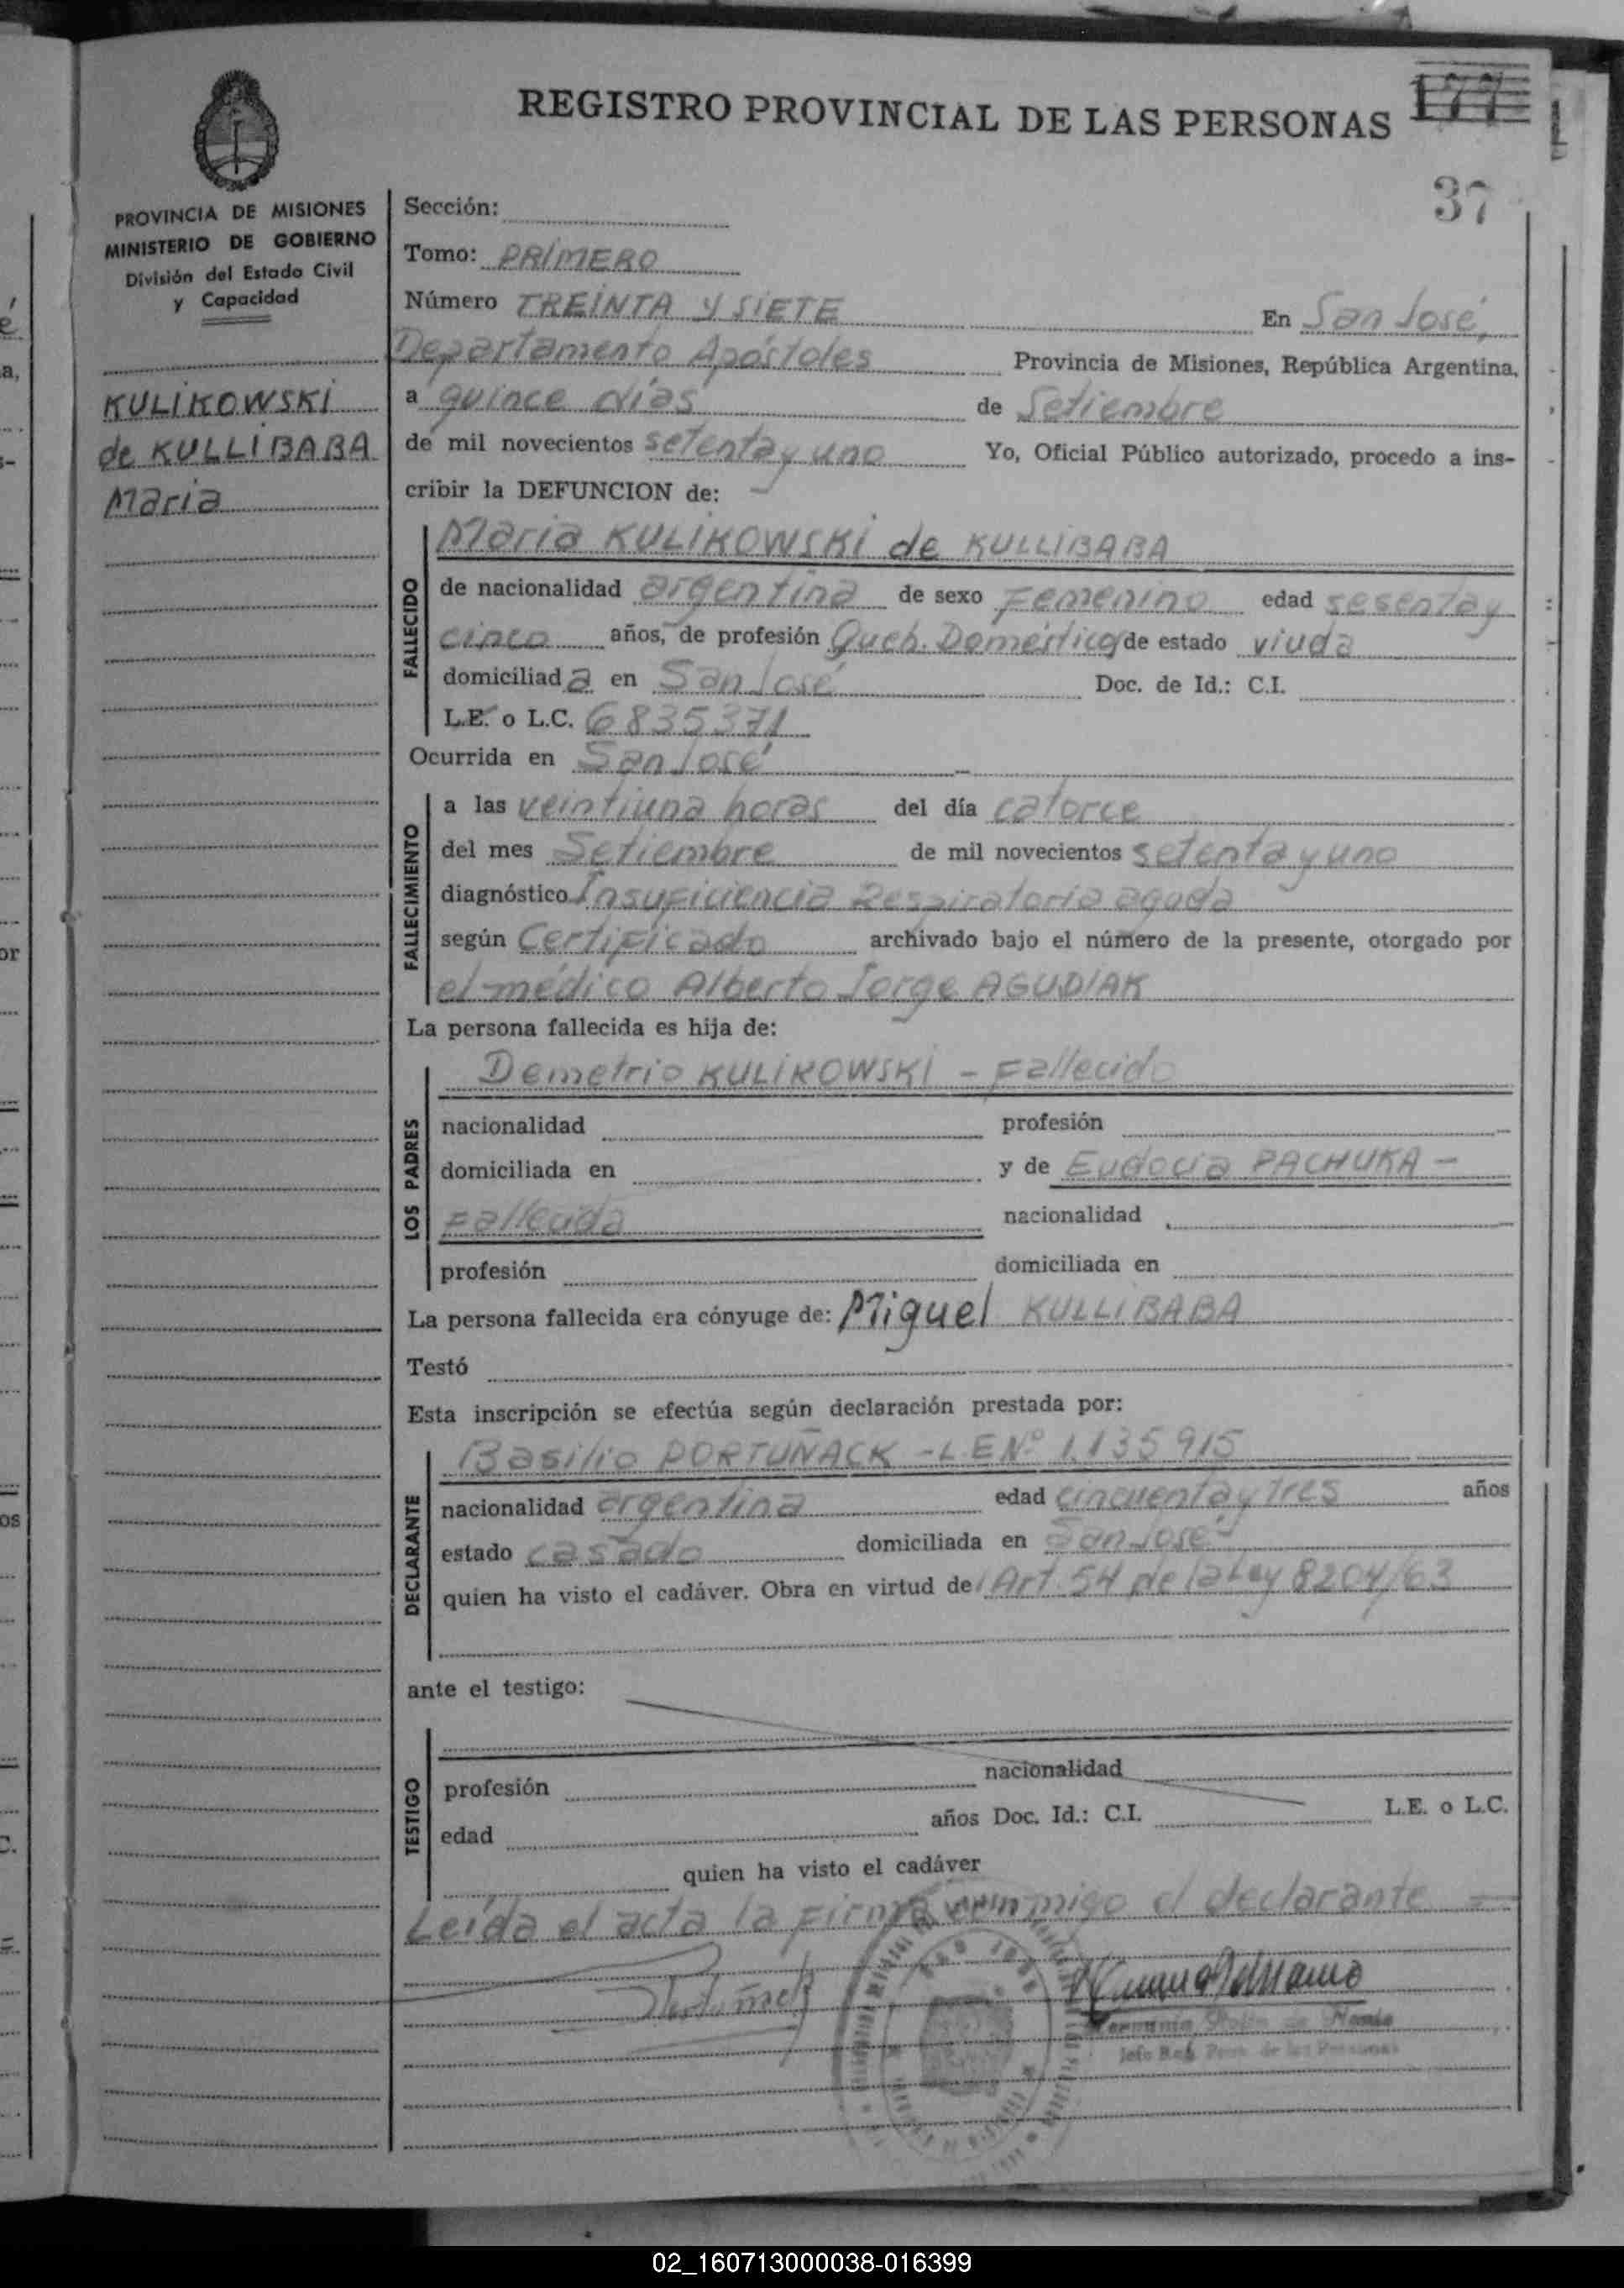 REGISTRO PROVINCIAL DE LAS PERSONAS
177
37
PROVINCIA DE MISIONES
MINISTERIO DE GOBIERNO
División del Estado Civil
y Capacidad
KULIKOWSKI
de KULLIBABA
Maria
Sección:
Tomo: PRIMERO
Número TREINTA Y SIETE En San José,
Departamento Apóstoles Provincia de Misiones, República Argentina,
a quince días de Setiembre
de mil novecientos setenta y uno Yo, Oficial Público autorizado, procedo a ins-
cribir la DEFUNCION de:
FALLECIDO
Maria KULIKOWSKI de KULLIBABA
de nacionalidad argentina de sexo Femenino edad sesenta y
cinco años, de profesión Queh. Domésticos de estado viuda
domiciliada en San José Doc. de Id.: C.I.
L.E. o L.C. 6835371
Ocurrida en San José
FALLECIMIENTO
a las veintiuna horas del día catorce
del mes Setiembre de mil novecientos setenta y uno
diagnóstico Insuficiencia Respiratoria aguda
según Certificado archivado bajo el número de la presente, otorgado por
el médico Alberto Jorge AGUDIAK
La persona fallecida es hija de:
LOS PADRES
Demetrio KULIKOWSKI - Fallecido
nacionalidad profesión
domiciliada en y de Eudocia PACHUKA -
Fallecida nacionalidad
profesión domiciliada en
La persona fallecida era cónyuge de: Miguel KULLIBABA
Testó
Esta inscripción se efectúa según declaración prestada por:
DECLARANTE
Basilio PORTUÑACK - L.E Nº 1.135915
nacionalidad argentina edad cincuenta y tres años
estado casado domiciliada en San José
quien ha visto el cadáver. Obra en virtud del Art. 54 de la Ley 8204/63
ante el testigo:
TESTIGO
profesión nacionalidad
edad años Doc. Id.: C.I. L.E. o L.C.
quien ha visto el cadáver
Leída el acta la firma conmigo el declarante =
Jefe Reg. Prov. de las Personas
02_160713000038-016399